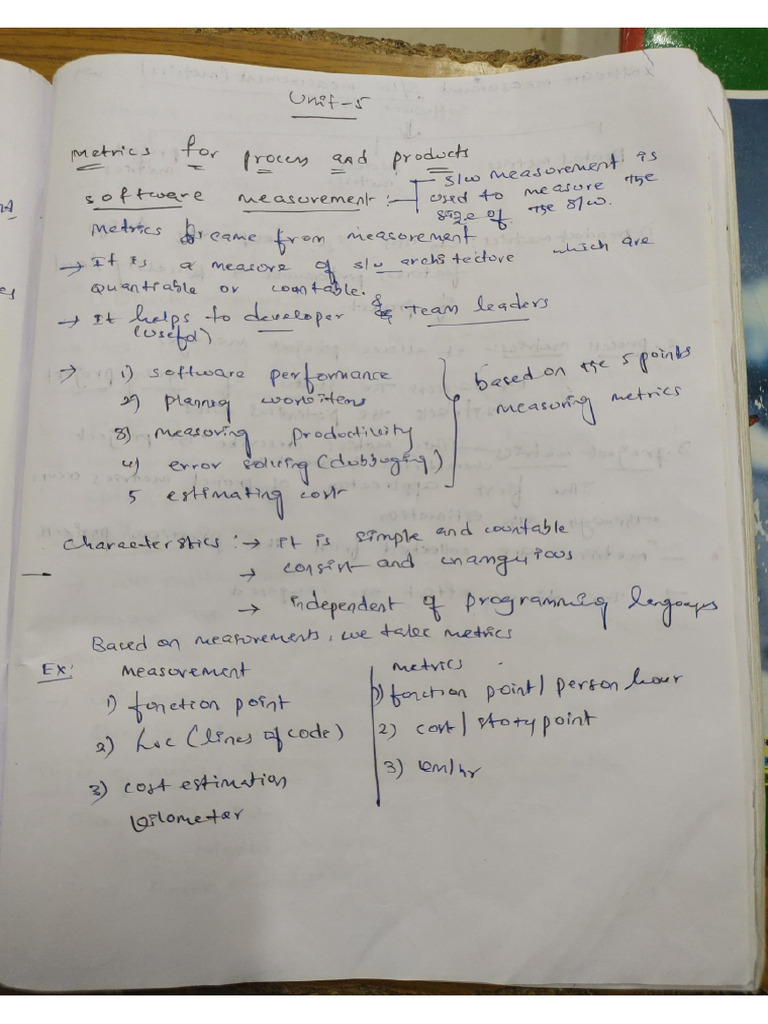 Unit-5
Metrics for process and products
software measurement :- S/w measurement is
used to measure the
size of the S/w.
Metrics came from measurement
→ It is a measure of s/w architecture which are
quantiable or countable.
→ It helps to developer & Team leaders
(useful)
→ 1) software performance
2) planing workitens
3) measuring productivity
4) error solving (dubbuging)
5 estimating cost
based on the 5 points
measuring metrics
Characteristics :→ it is simple and countable
→ consist and unanguious
→ independent of programming languages
Based on measurements, we take metrics
Ex: Measurement
1) function point
2) Loc (lines of code)
3) cost estimation
kilometer
metrics
1) function point / person hour
2) cost / story point
3) km/hr